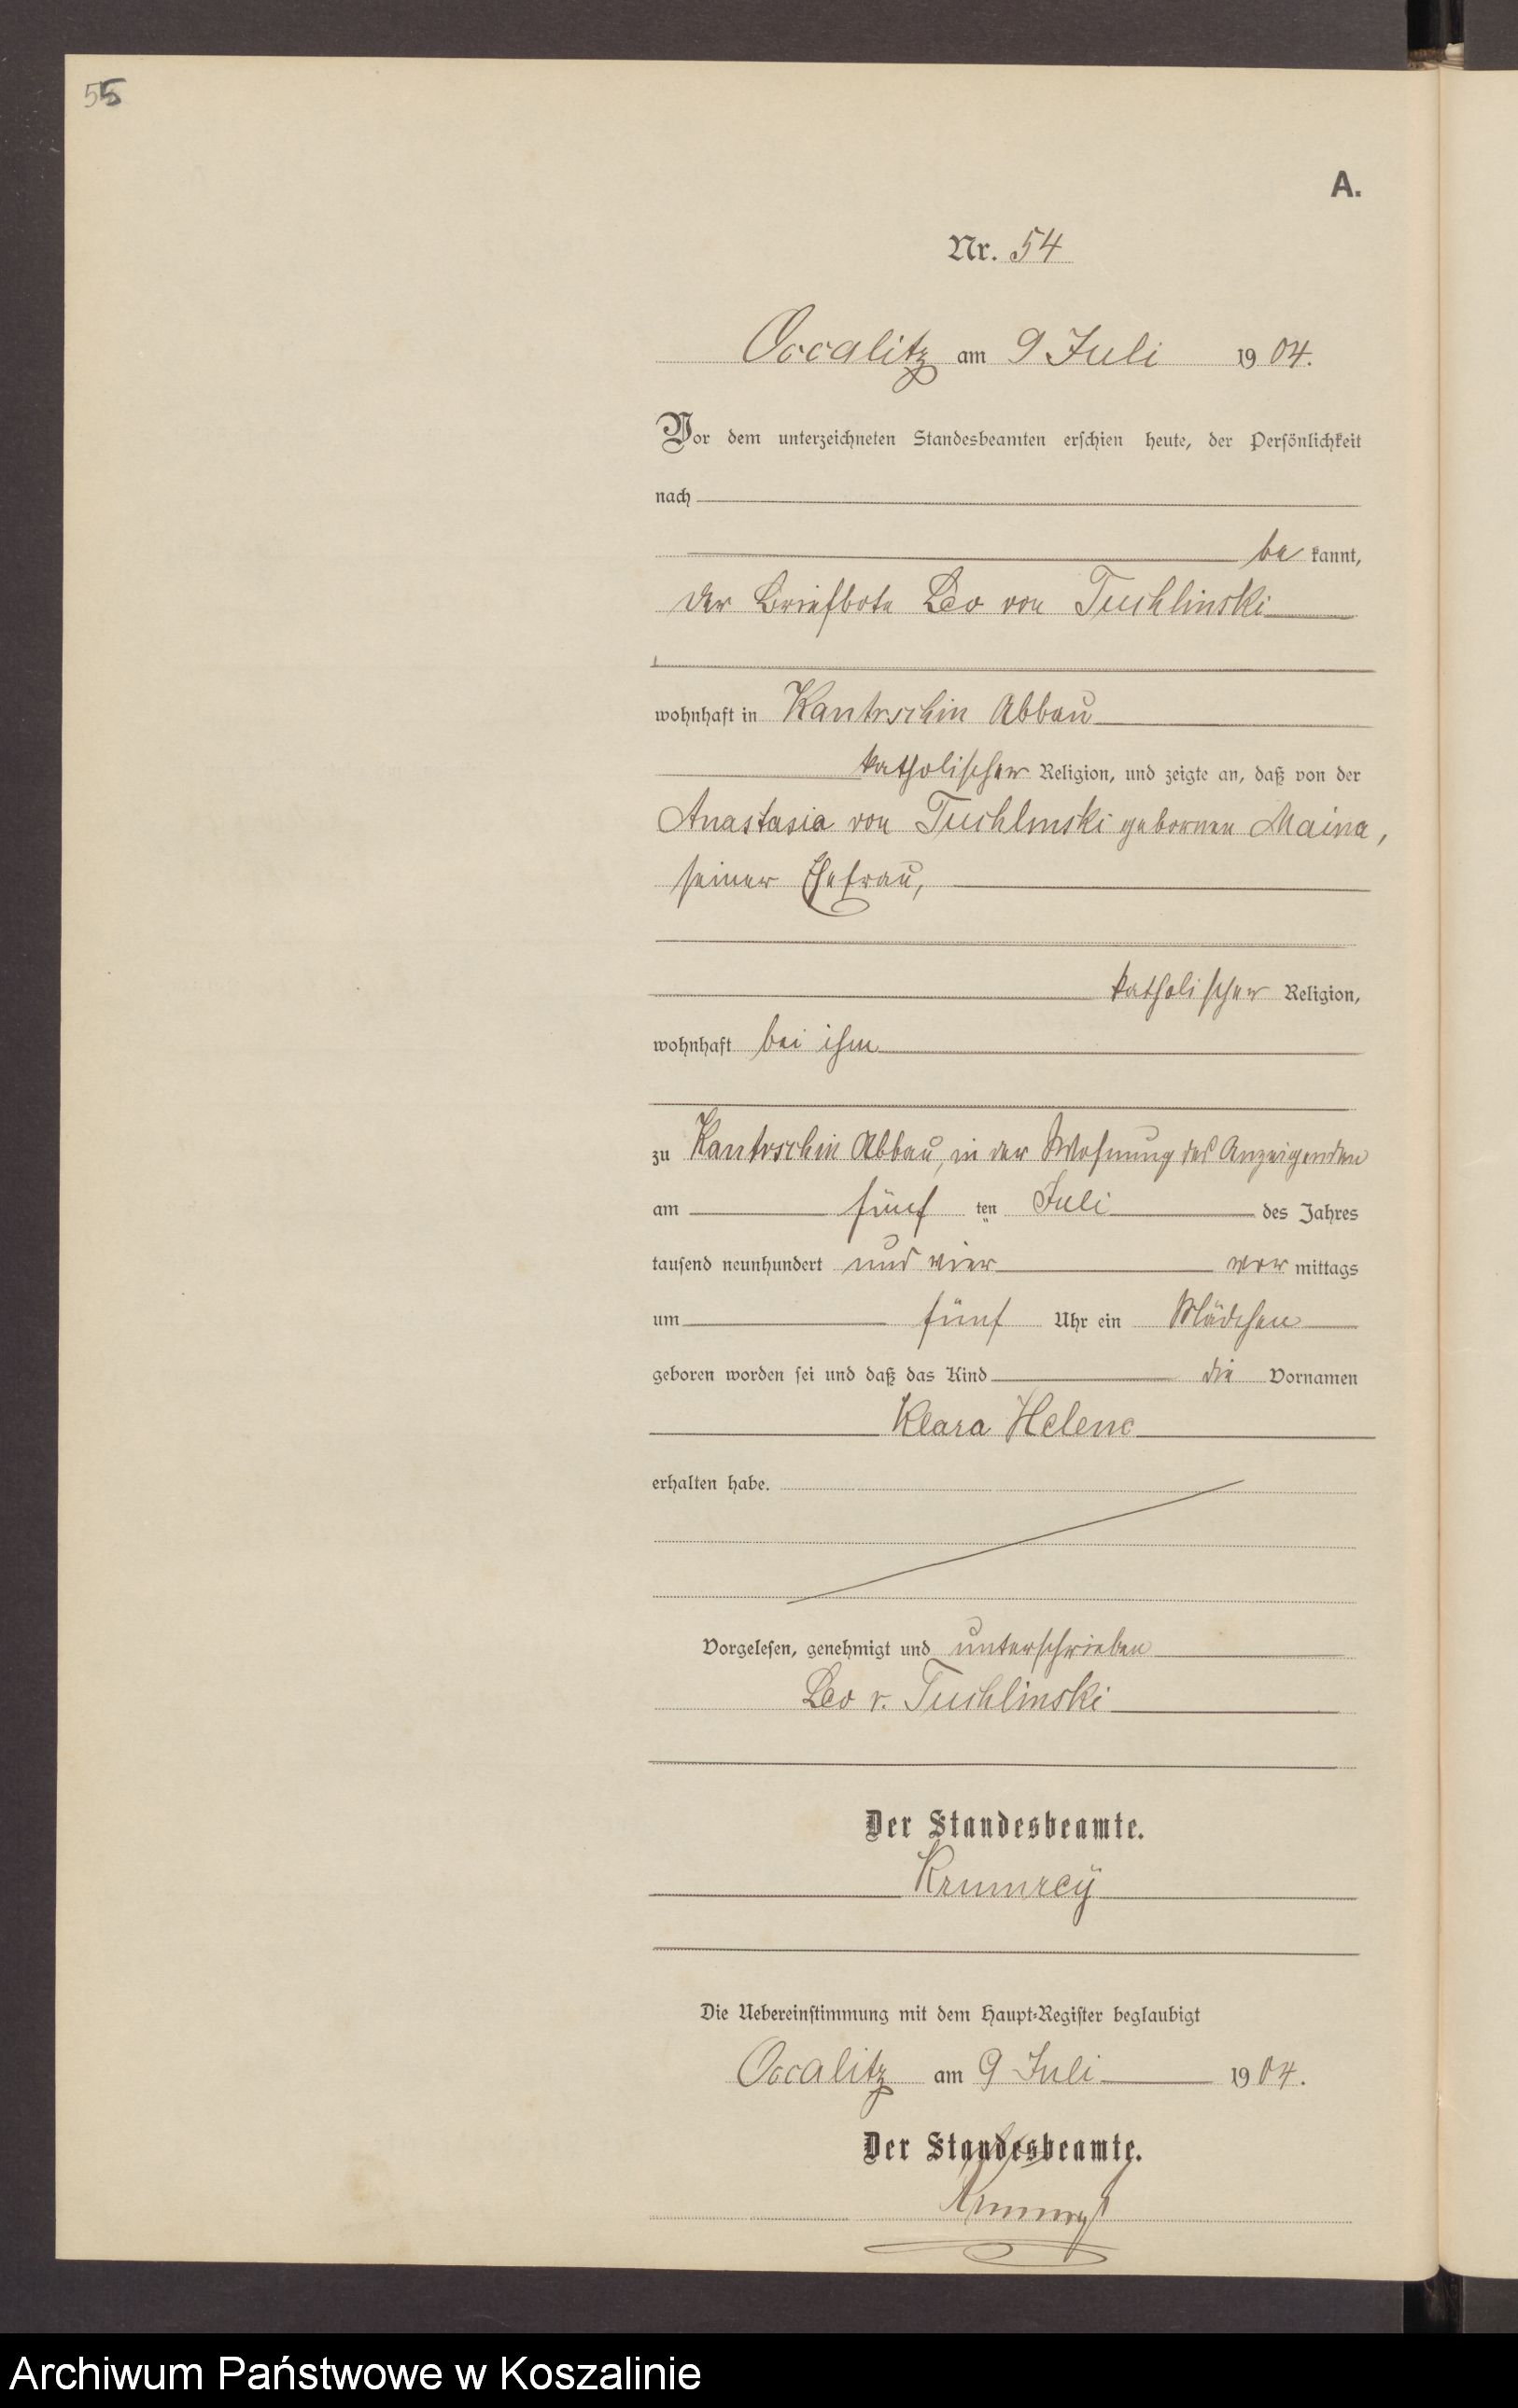 55
A.
Nr. 54
Occalitz am 9 Juli 1904.
Vor dem unterzeichneten Standesbeamten erschien heute, der Persönlichkeit
nach
be kannt,
der Briefbote Leo von Tuchlinski
wohnhaft in Kantrschin Abbau
katholischer Religion, und zeigte an, daß von der
Anastasia von Tuchlinski gebornen Maina,
seiner Ehefrau,
katholischer Religion,
wohnhaft bei ihm
zu Kantrschin Abbau, in der Wohnung des Anzeigenden
am fünf ten Juli des Jahres
tausend neunhundert und vier vor mittags
um fünf Uhr ein Mädchen
geboren worden sei und daß das Kind die Vornamen
Klara Helene
erhalten habe.
Vorgelesen, genehmigt und unterschrieben
Leo v. Tuchlinski
Der Standesbeamte.
Krumrey
Die Uebereinstimmung mit dem Haupt-Register beglaubigt
Occalitz am 9 Juli 1904.
Der Standesbeamte.
Krumrey
Archiwum Państwowe w Koszalinie